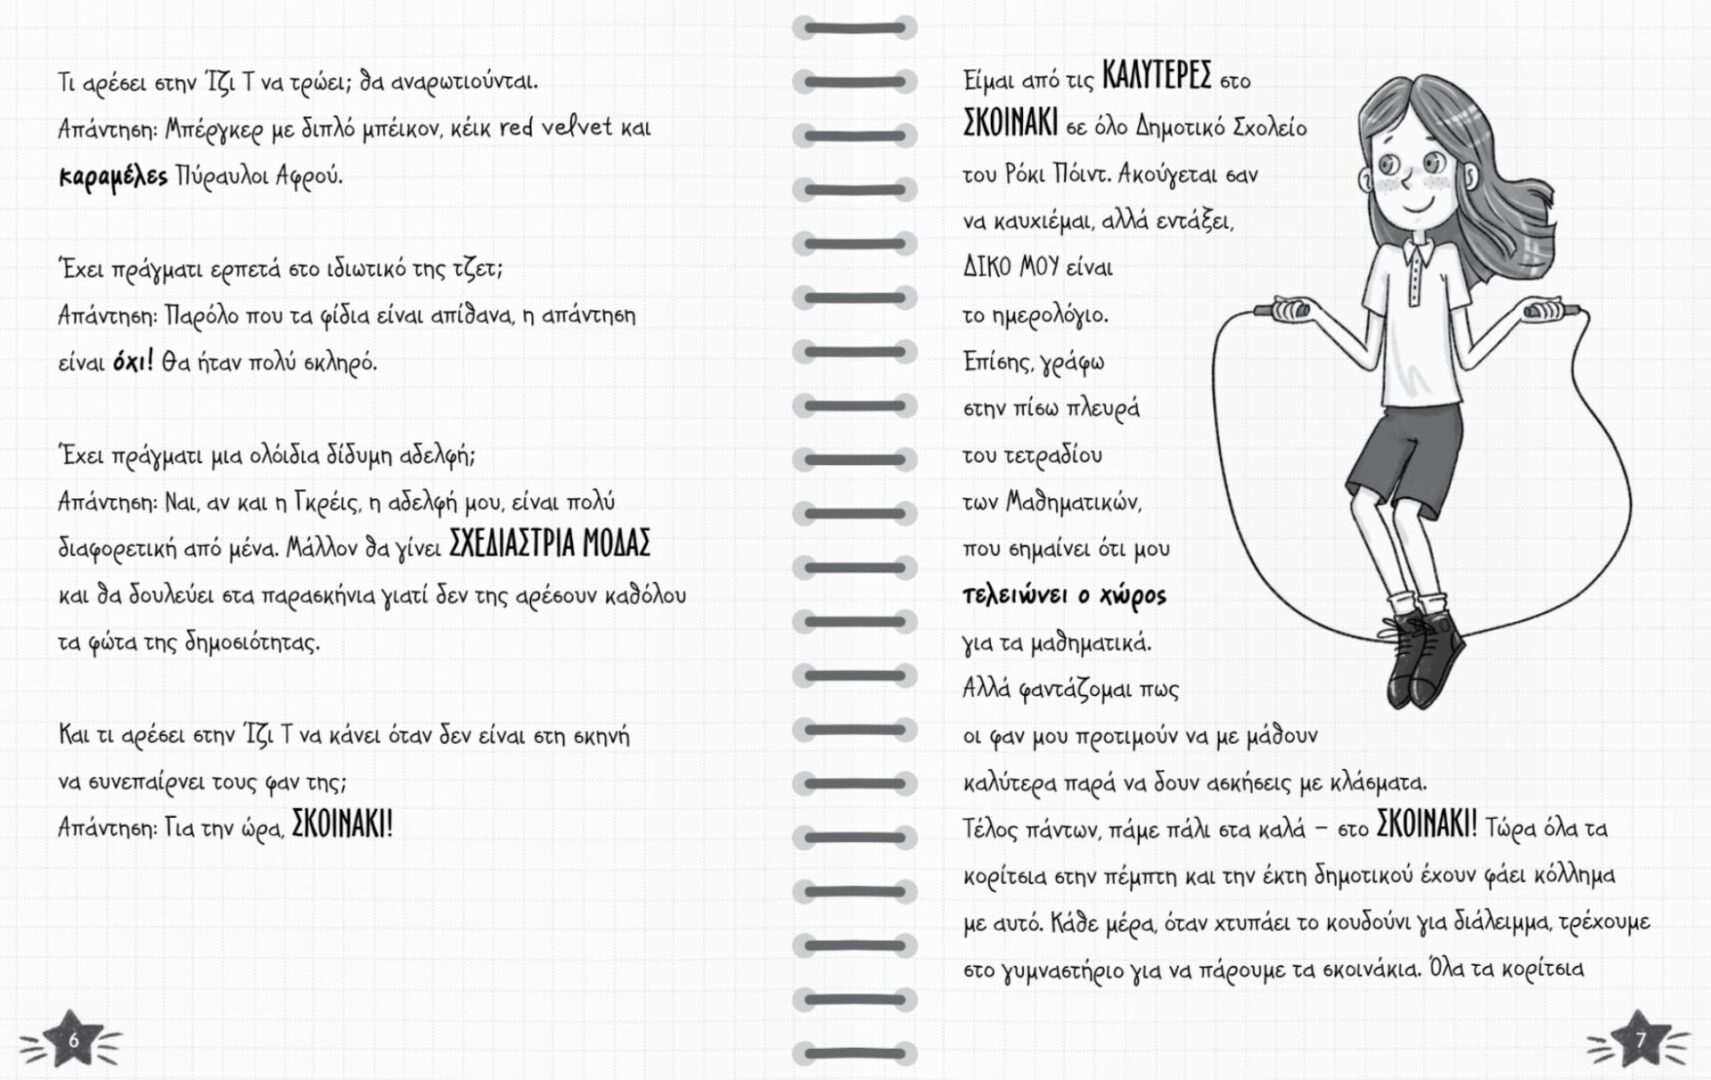 Τι αρέσει στην Ίζι Τ να τρώει; θα αναρωτιούνται.
Απάντηση: Μπέργκερ με διπλό μπέικον, κέικ red velvet και
καραμέλες Πύραυλοι Αφρού.
Έχει πράγματι ερπετά στο ιδιωτικό της τζετ;
Απάντηση: Παρόλο που τα φίδια είναι απίθανα, η απάντηση
είναι όχι! Θα ήταν πολύ σκληρό.
Έχει πράγματι μια ολόιδια δίδυμη αδελφή;
Απάντηση: Ναι, αν και η Γκρέις, η αδελφή μου, είναι πολύ
διαφορετική από μένα. Μάλλον θα γίνει ΣΧΕΔΙΑΣΤΡΙΑ ΜΟΔΑΣ
και θα δουλεύει στα παρασκήνια γιατί δεν της αρέσουν καθόλου
τα φώτα της δημοσιότητας.
Και τι αρέσει στην Ίζι Τ να κάνει όταν δεν είναι στη σκηνή
να συνεπαίρνει τους φαν της;
Απάντηση: Για την ώρα, ΣΚΟΙΝΑΚΙ!
6
Είμαι από τις ΚΑΛΥΤΕΡΕΣ στο
ΣΚΟΙΝΑΚΙ σε όλο Δημοτικό Σχολείο
του Ρόκι Πόιντ. Ακούγεται σαν
να καυχιέμαι, αλλά εντάξει,
ΔΙΚΟ ΜΟΥ είναι
το ημερολόγιο.
Επίσης, γράφω
στην πίσω πλευρά
του τετραδίου
των Μαθηματικών,
που σημαίνει ότι μου
τελειώνει ο χώρος
για τα μαθηματικά.
Αλλά φαντάζομαι πως
οι φαν μου προτιμούν να με μάθουν
καλύτερα παρά να δουν ασκήσεις με κλάσματα.
Τέλος πάντων, πάμε πάλι στα καλά – στο ΣΚΟΙΝΑΚΙ! Τώρα όλα τα
κορίτσια στην πέμπτη και την έκτη δημοτικού έχουν φάει κόλλημα
με αυτό. Κάθε μέρα, όταν χτυπάει το κουδούνι για διάλειμμα, τρέχουμε
στο γυμναστήριο για να πάρουμε τα σκοινάκια. Όλα τα κορίτσια
7